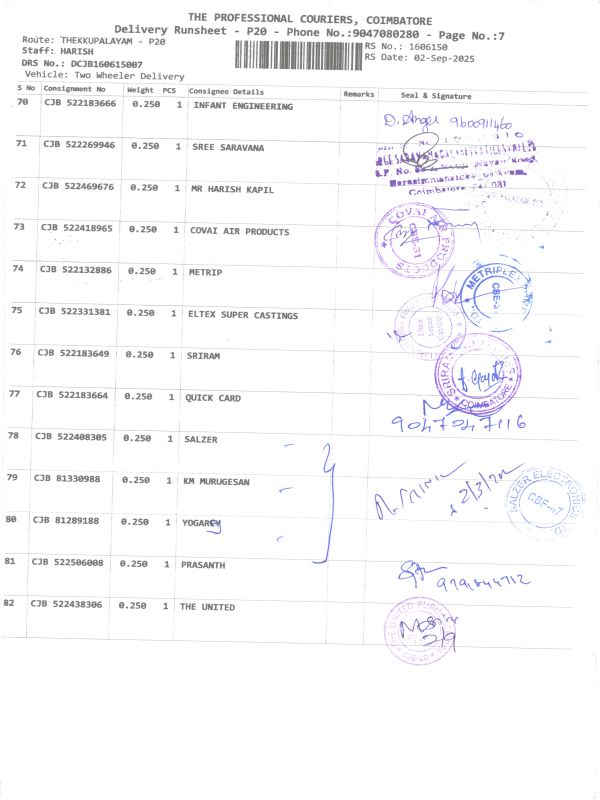 THE PROFESSIONAL COURIERS, COIMBATORE
Delivery Runsheet - P20 - Phone No.:9047080280 - Page No.:7
Route: THEKKUPALAYAM - P20 RS No.: 1606150
Staff: HARISH RS Date: 02-Sep-2025
DRS No.: DCJB160615007
Vehicle: Two Wheeler Delivery
S No Consignment No Weight PCS Consignee Details Remarks Seal & Signature
70 CJB 522183666 0.250 1 INFANT ENGINEERING
D. Angel 9600911460
71 CJB 522269946 0.250 1 SREE SARAVANA
72 CJB 522469676 0.250 1 MR HARISH KAPIL
Coimbatore
73 CJB 522418965 0.250 1 COVAI AIR PRODUCTS
COVAI AIR PRODUCTS
74 CJB 522132886 0.250 1 METRIP
METRIPLEX
75 CJB 522331381 0.250 1 ELTEX SUPER CASTINGS
Eltex Super Casting
76 CJB 522183649 0.250 1 SRIRAM
SRIRAM COIMBATORE
77 CJB 522183664 0.250 1 QUICK CARD
9047047116
78 CJB 522408305 0.250 1 SALZER
79 CJB 81330988 0.250 1 KM MURUGESAN
SALZER ELECTRONICS
80 CJB 81289188 0.250 1 YOGARGY
81 CJB 522506008 0.250 1 PRASANTH
82 CJB 522438306 0.250 1 THE UNITED
THE UNITED CBE-20
2/9